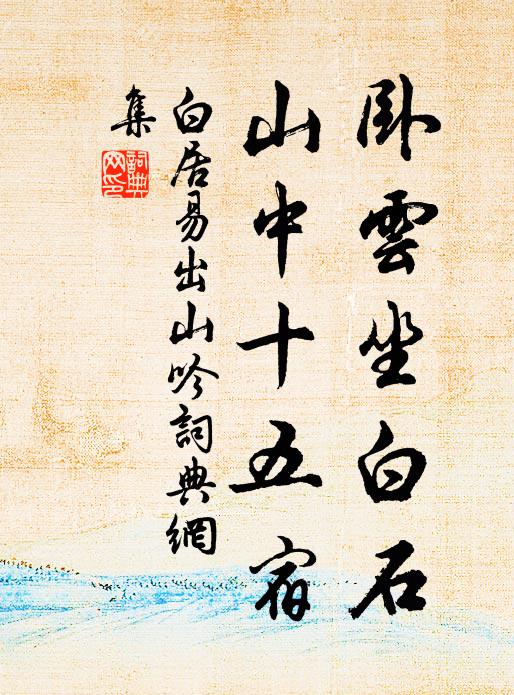 卧雲坐白石
山中十五宿
白居易出山吟詞典網
集
詞典
网印